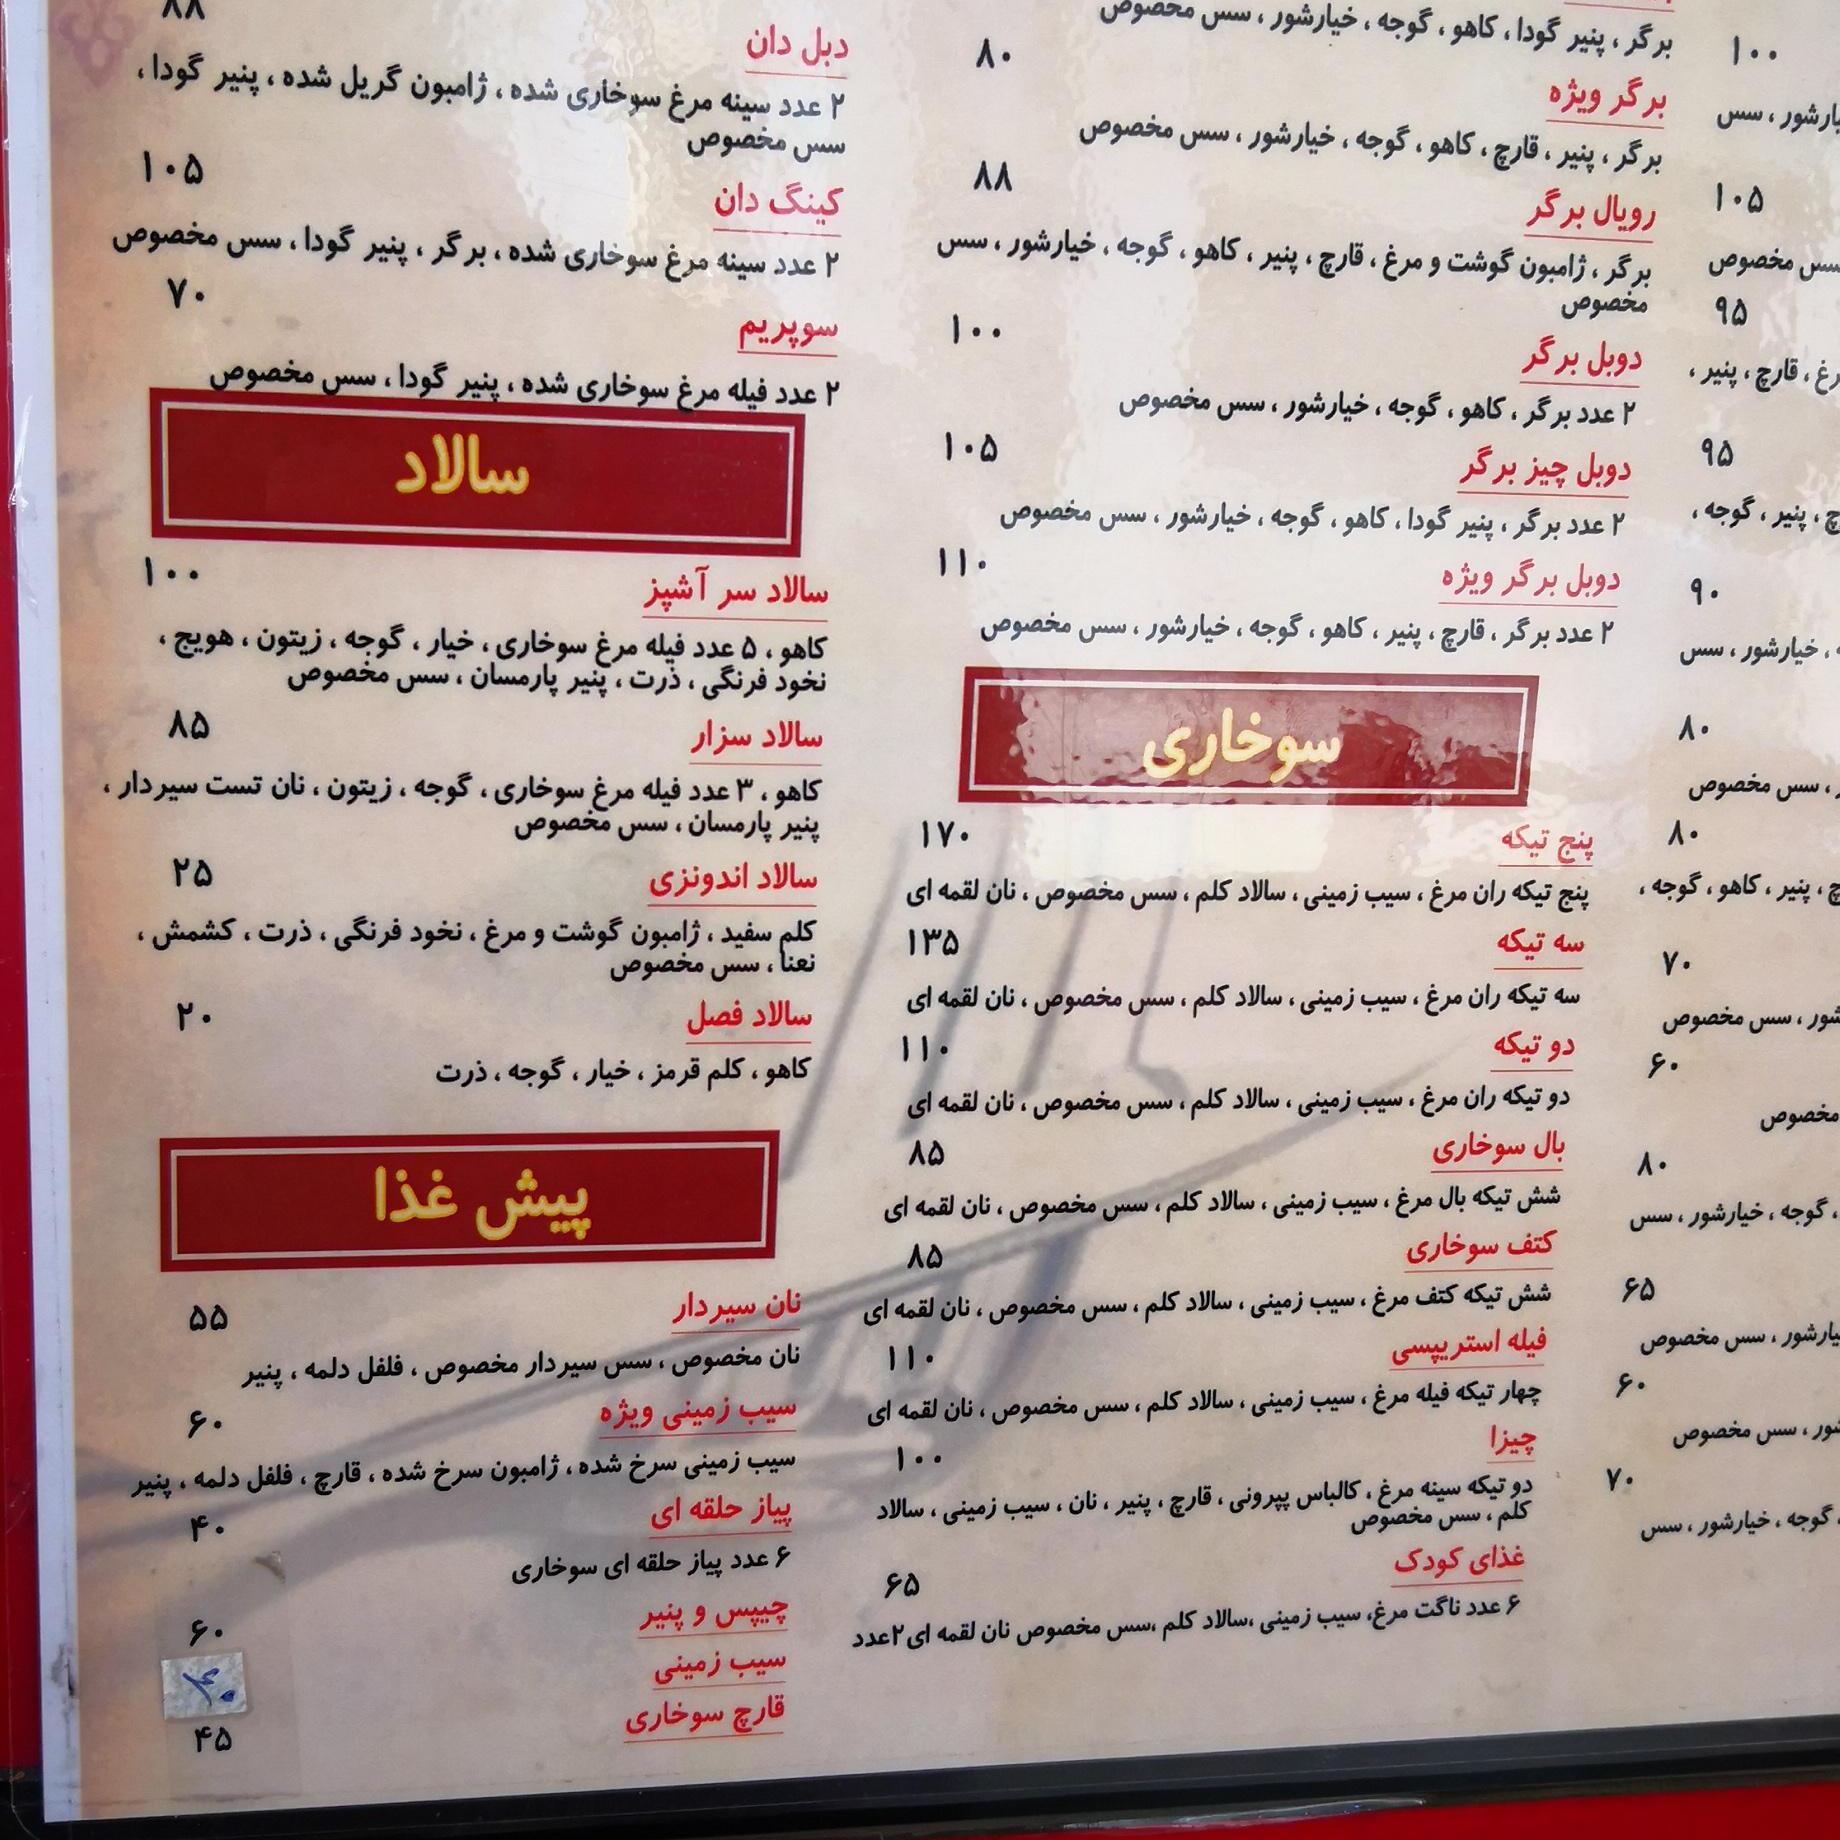 ۱۰۰
یارشور ، سس
۱۰۵
سس مخصوص
۹۵
رغ ، قارچ ، پنیر ،
۹۵
چ ، پنیر ، گوجه ،
۹۰
، خیارشور ، سس
۸۰
، سس مخصوص
۸۰
چ ، پنیر ، کاهو ، گوجه ،
۷۰
شور ، سس مخصوص
۶۰
مخصوص
۸۰
، گوجه ، خیارشور ، سس
۶۵
یارشور ، سس مخصوص
۶۰
شور ، سس مخصوص
۷۰
، گوجه ، خیارشور ، سس
برگر ، پنیر گودا ، کاهو ، گوجه ، خیارشور ، سس مخصوص
برگر ویژه ۸۰
برگر ، پنیر ، قارچ ، کاهو ، گوجه ، خیارشور ، سس مخصوص
رویال برگر ۸۸
برگر ، ژامبون گوشت و مرغ ، قارچ ، پنیر ، کاهو ، گوجه ، خیارشور ، سس
مخصوص
دوبل برگر ۱۰۰
۲ عدد برگر ، کاهو ، گوجه ، خیارشور ، سس مخصوص
دوبل چیز برگر ۱۰۵
۲ عدد برگر ، پنیر گودا ، کاهو ، گوجه ، خیارشور ، سس مخصوص
دوبل برگر ویژه ۱۱۰
۲ عدد برگر ، قارچ ، پنیر ، کاهو ، گوجه ، خیارشور ، سس مخصوص
سوخاری
پنج تیکه ۱۷۰
پنج تیکه ران مرغ ، سیب زمینی ، سالاد کلم ، سس مخصوص ، نان لقمه ای
سه تیکه ۱۳۵
سه تیکه ران مرغ ، سیب زمینی ، سالاد کلم ، سس مخصوص ، نان لقمه ای
دو تیکه ۱۱۰
دو تیکه ران مرغ ، سیب زمینی ، سالاد کلم ، سس مخصوص ، نان لقمه ای
بال سوخاری ۸۵
شش تیکه بال مرغ ، سیب زمینی ، سالاد کلم ، سس مخصوص ، نان لقمه ای
کتف سوخاری ۸۵
شش تیکه کتف مرغ ، سیب زمینی ، سالاد کلم ، سس مخصوص ، نان لقمه ای
فیله استریپسی ۱۱۰
چهار تیکه فیله مرغ ، سیب زمینی ، سالاد کلم ، سس مخصوص ، نان لقمه ای
چیزا ۱۰۰
دو تیکه سینه مرغ ، کالباس پپرونی ، قارچ ، پنیر ، نان ، سیب زمینی ، سالاد
کلم ، سس مخصوص
غذای کودک ۶۵
۶ عدد ناگت مرغ، سیب زمینی ،سالاد کلم ،سس مخصوص نان لقمه ای۲عدد
۸۸
دبل دان
۲ عدد سینه مرغ سوخاری شده ، ژامبون گریل شده ، پنیر گودا ،
سس مخصوص
کینگ دان ۱۰۵
۲ عدد سینه مرغ سوخاری شده ، برگر ، پنیر گودا ، سس مخصوص
سوپریم ۷۰
۲ عدد فیله مرغ سوخاری شده ، پنیر گودا ، سس مخصوص
سالاد
سالاد سر آشپز ۱۰۰
کاهو ، ۵ عدد فیله مرغ سوخاری ، خیار ، گوجه ، زیتون ، هویج ،
نخود فرنگی ، ذرت ، پنیر پارمسان ، سس مخصوص
سالاد سزار ۸۵
کاهو ، ۳ عدد فیله مرغ سوخاری ، گوجه ، زیتون ، نان تست سیردار ،
پنیر پارمسان ، سس مخصوص
سالاد اندونزی ۲۵
کلم سفید ، ژامبون گوشت و مرغ ، نخود فرنگی ، ذرت ، کشمش ،
نعنا ، سس مخصوص
سالاد فصل ۲۰
کاهو ، کلم قرمز ، خیار ، گوجه ، ذرت
پیش غذا
نان سیردار ۵۵
نان مخصوص ، سس سیردار مخصوص ، فلفل دلمه ، پنیر
سیب زمینی ویژه ۶۰
سیب زمینی سرخ شده ، ژامبون سرخ شده ، قارچ ، فلفل دلمه ، پنیر
پیاز حلقه ای ۴۰
۶ عدد پیاز حلقه ای سوخاری
چیپس و پنیر ۶۰
سیب زمینی ۴۰
قارچ سوخاری ۴۵